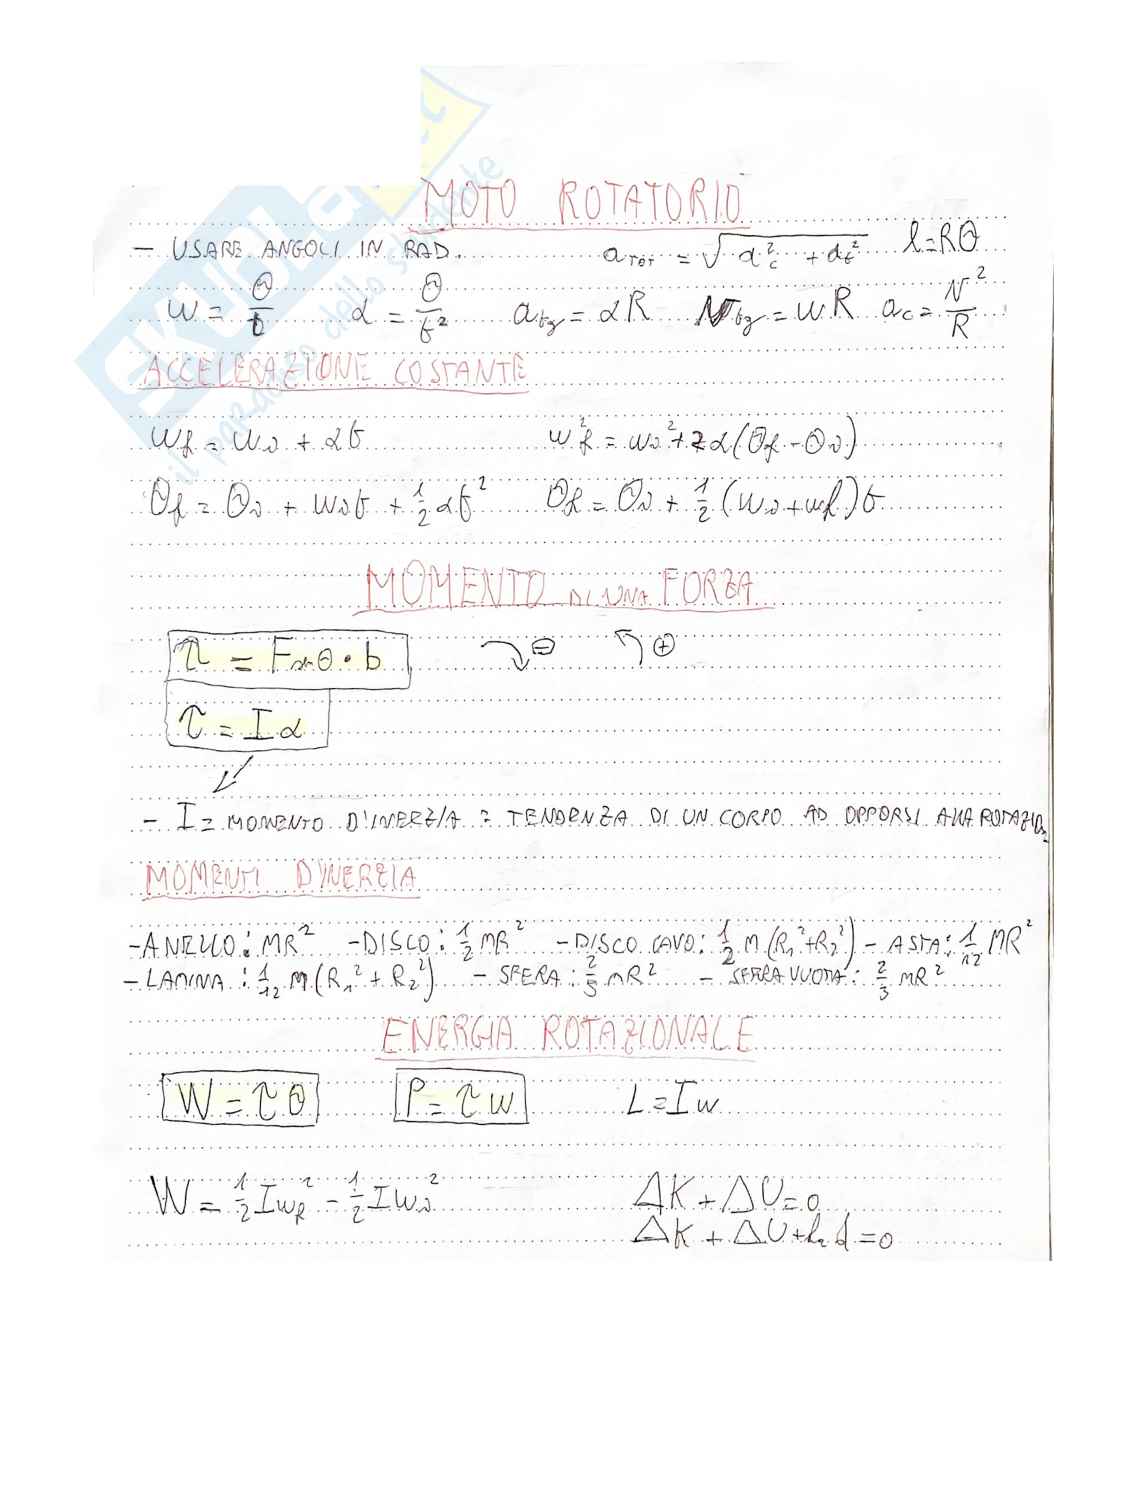 MOTO ROTATORIO
- USARE ANGOLI IN RAD. a_TOT = √(a_c² + a_t²) l = Rθ
ω = θ/t α = θ/t² a_tg = αR v_tg = ωR a_c = v²/R
ACCELERAZIONE COSTANTE
ω_f = ω_0 + αt ω_f² = ω_0² + 2α(θ_f - θ_0)
θ_f = θ_0 + ω_0t + 1/2 αt² θ_f = θ_0 + 1/2 (ω_0 + ω_f)t
MOMENTO DI UNA FORZA
τ = F senθ · b ⊖ ⊕
τ = Iα
- I = MOMENTO D'INERZIA = TENDENZA DI UN CORPO AD OPPORSI ALLA
MOMENTI D'INERZIA
- ANELLO: MR² - DISCO: 1/2 MR² - DISCO CAVO: 1/2 M(R₁²+R₂²) - ASTA: 1/12 MR²
- LAMINA: 1/12 M(R₁² + R₂²) - SFERA: 2/5 MR² - SFERA VUOTA: 2/3 MR²
ENERGIA ROTAZIONALE
W = τθ P = τω L = Iω
W = 1/2 Iω_f² - 1/2 Iω_0² ΔK + ΔU = 0
ΔK + ΔU + d = 0
SKUOLA
il paradiso dello studente